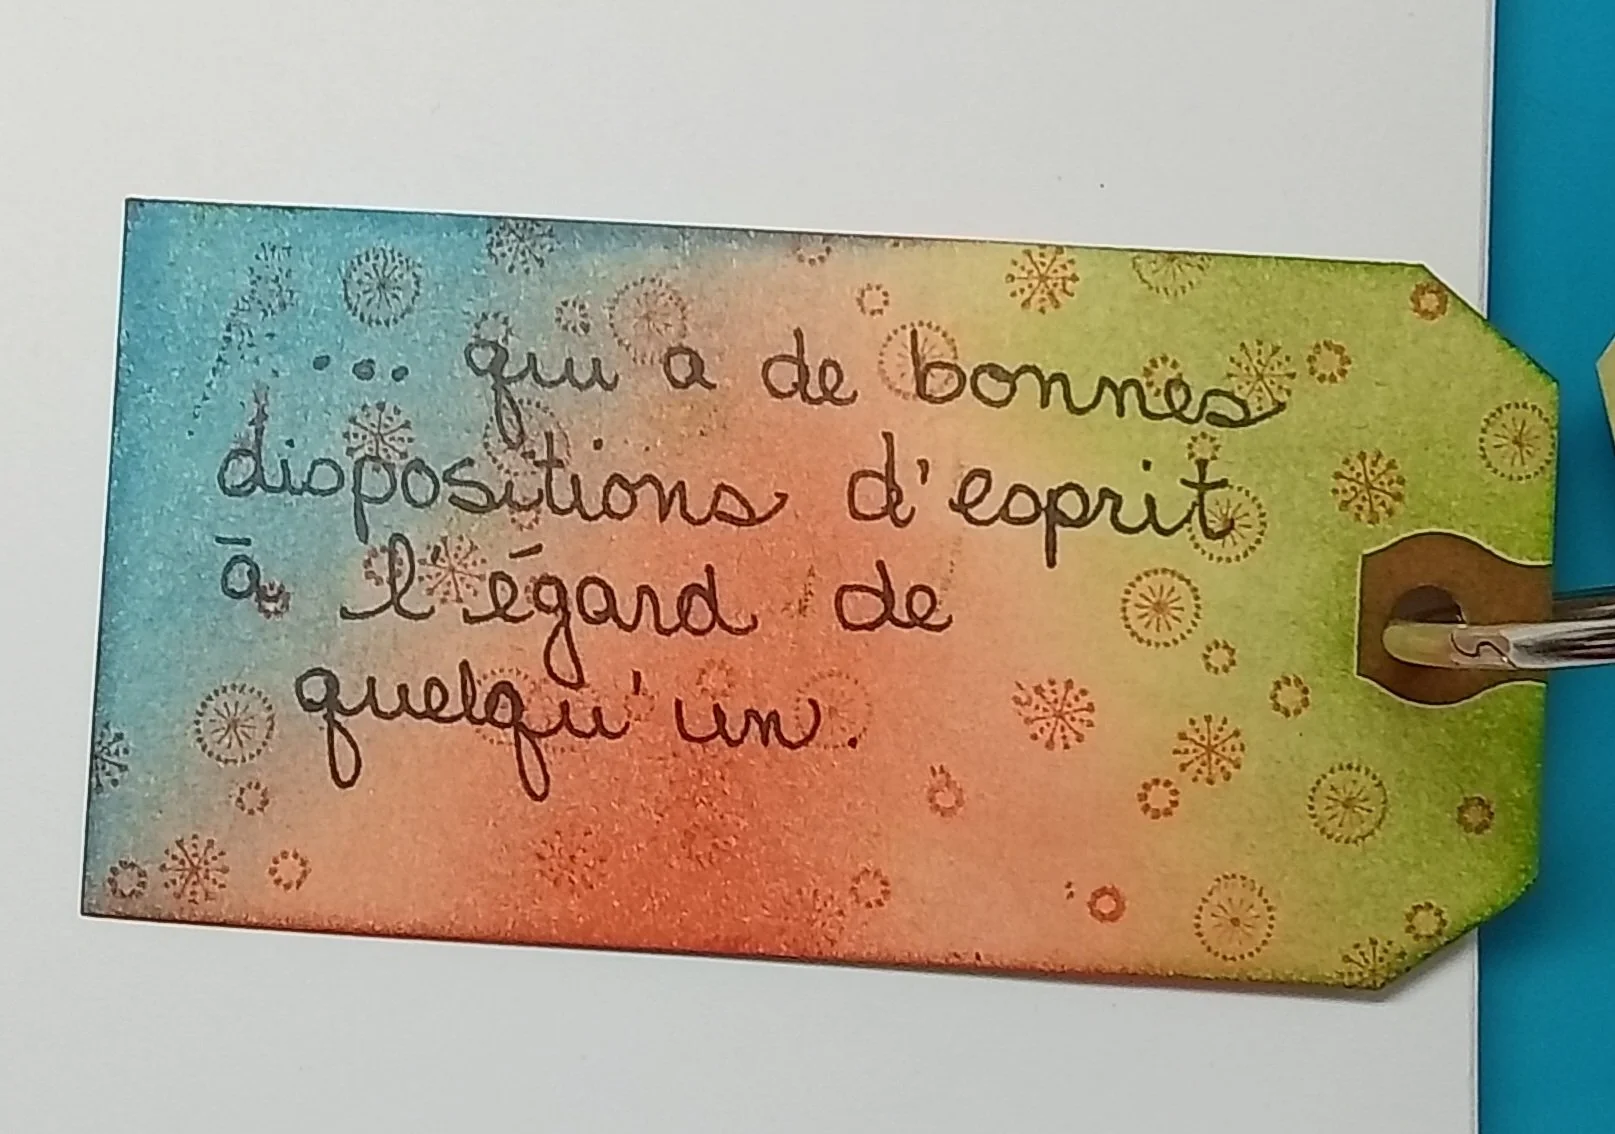 ... qui a de bonnes
dispositions d'esprit
à l'égard de
quelqu'un.